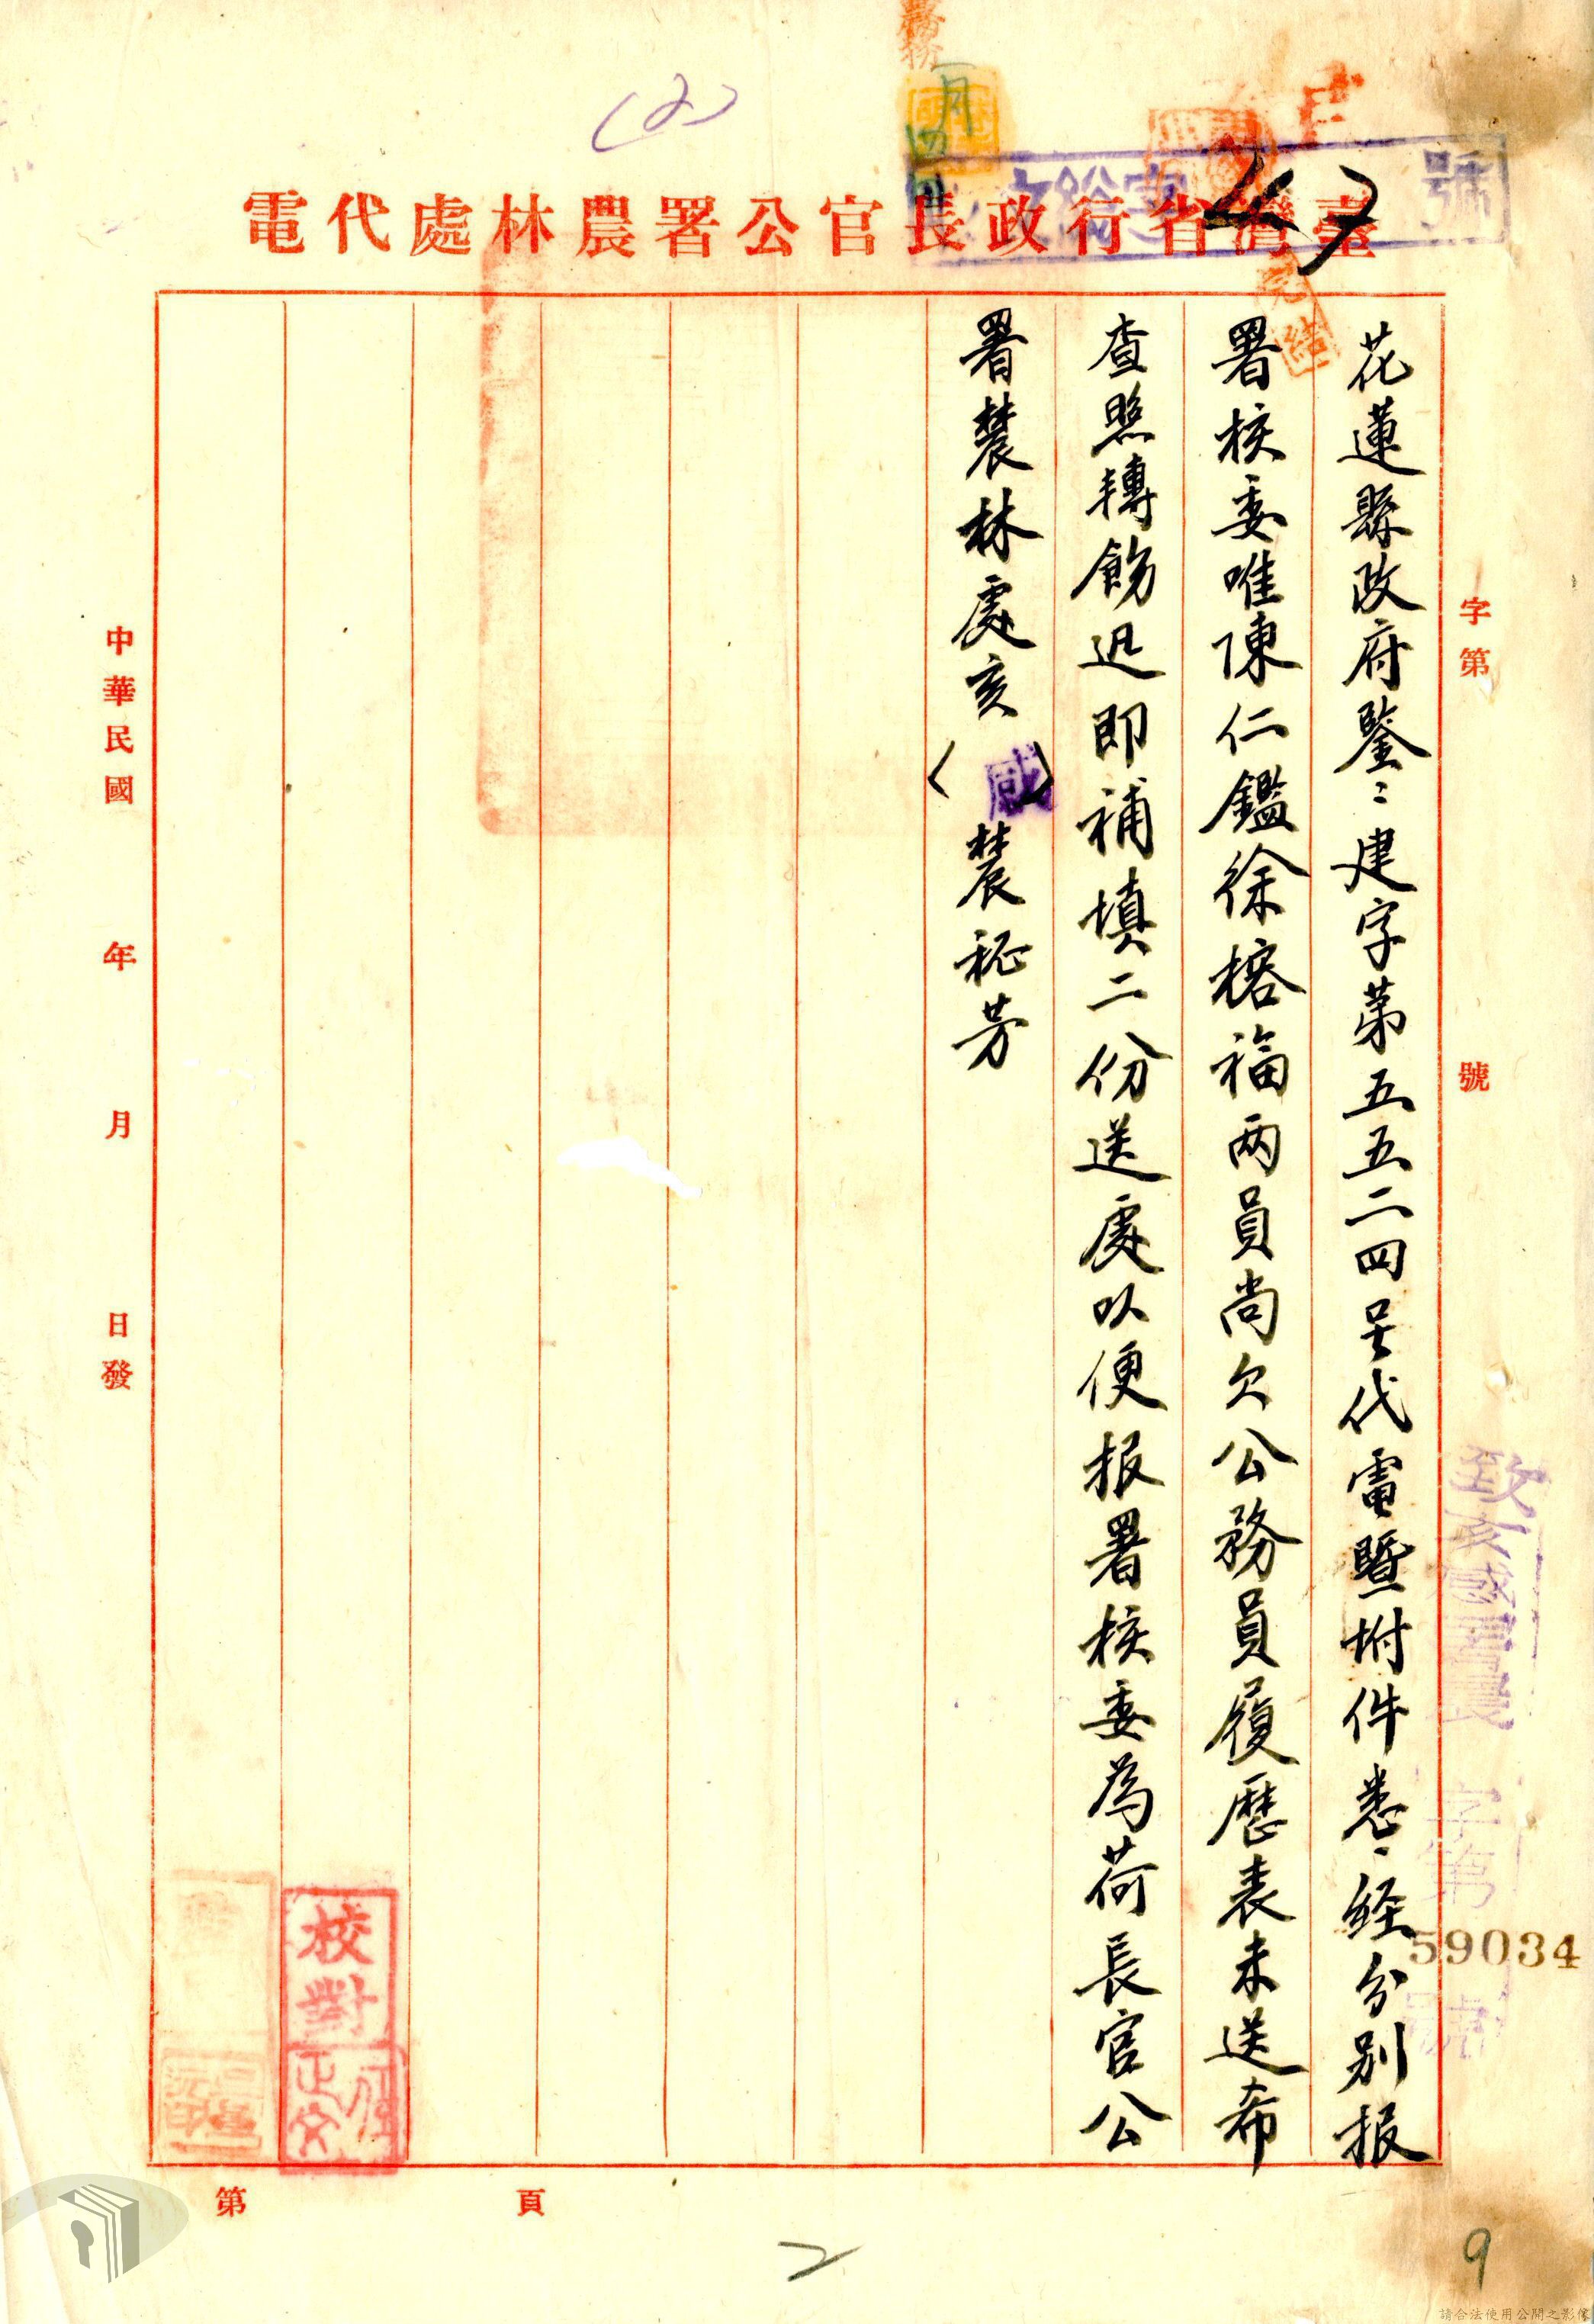 (2)
臺灣省行政長官公署農林處代電
字第 號
花蓮縣政府鑒:建字第五五二四号代電暨附件悉、経分別报
署核委唯陳仁鑑徐榕福两員尚欠公務員履歷表未送希
查照轉飭迅即補填二份送處以便报署核委為荷長官公
署農林處亥( 感 )農秘芳
致亥感署農 字第 59034 號
中華民國 年 月 日發
校對
第 頁
2
9
請合法使用公開之影像